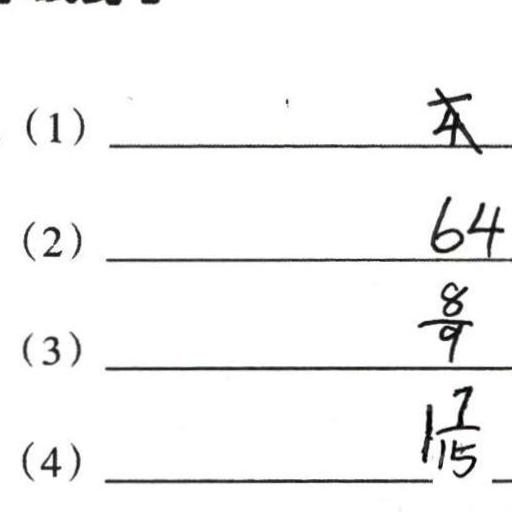 (1)
(2) 64
(3) 8/9
(4) 1 7/15